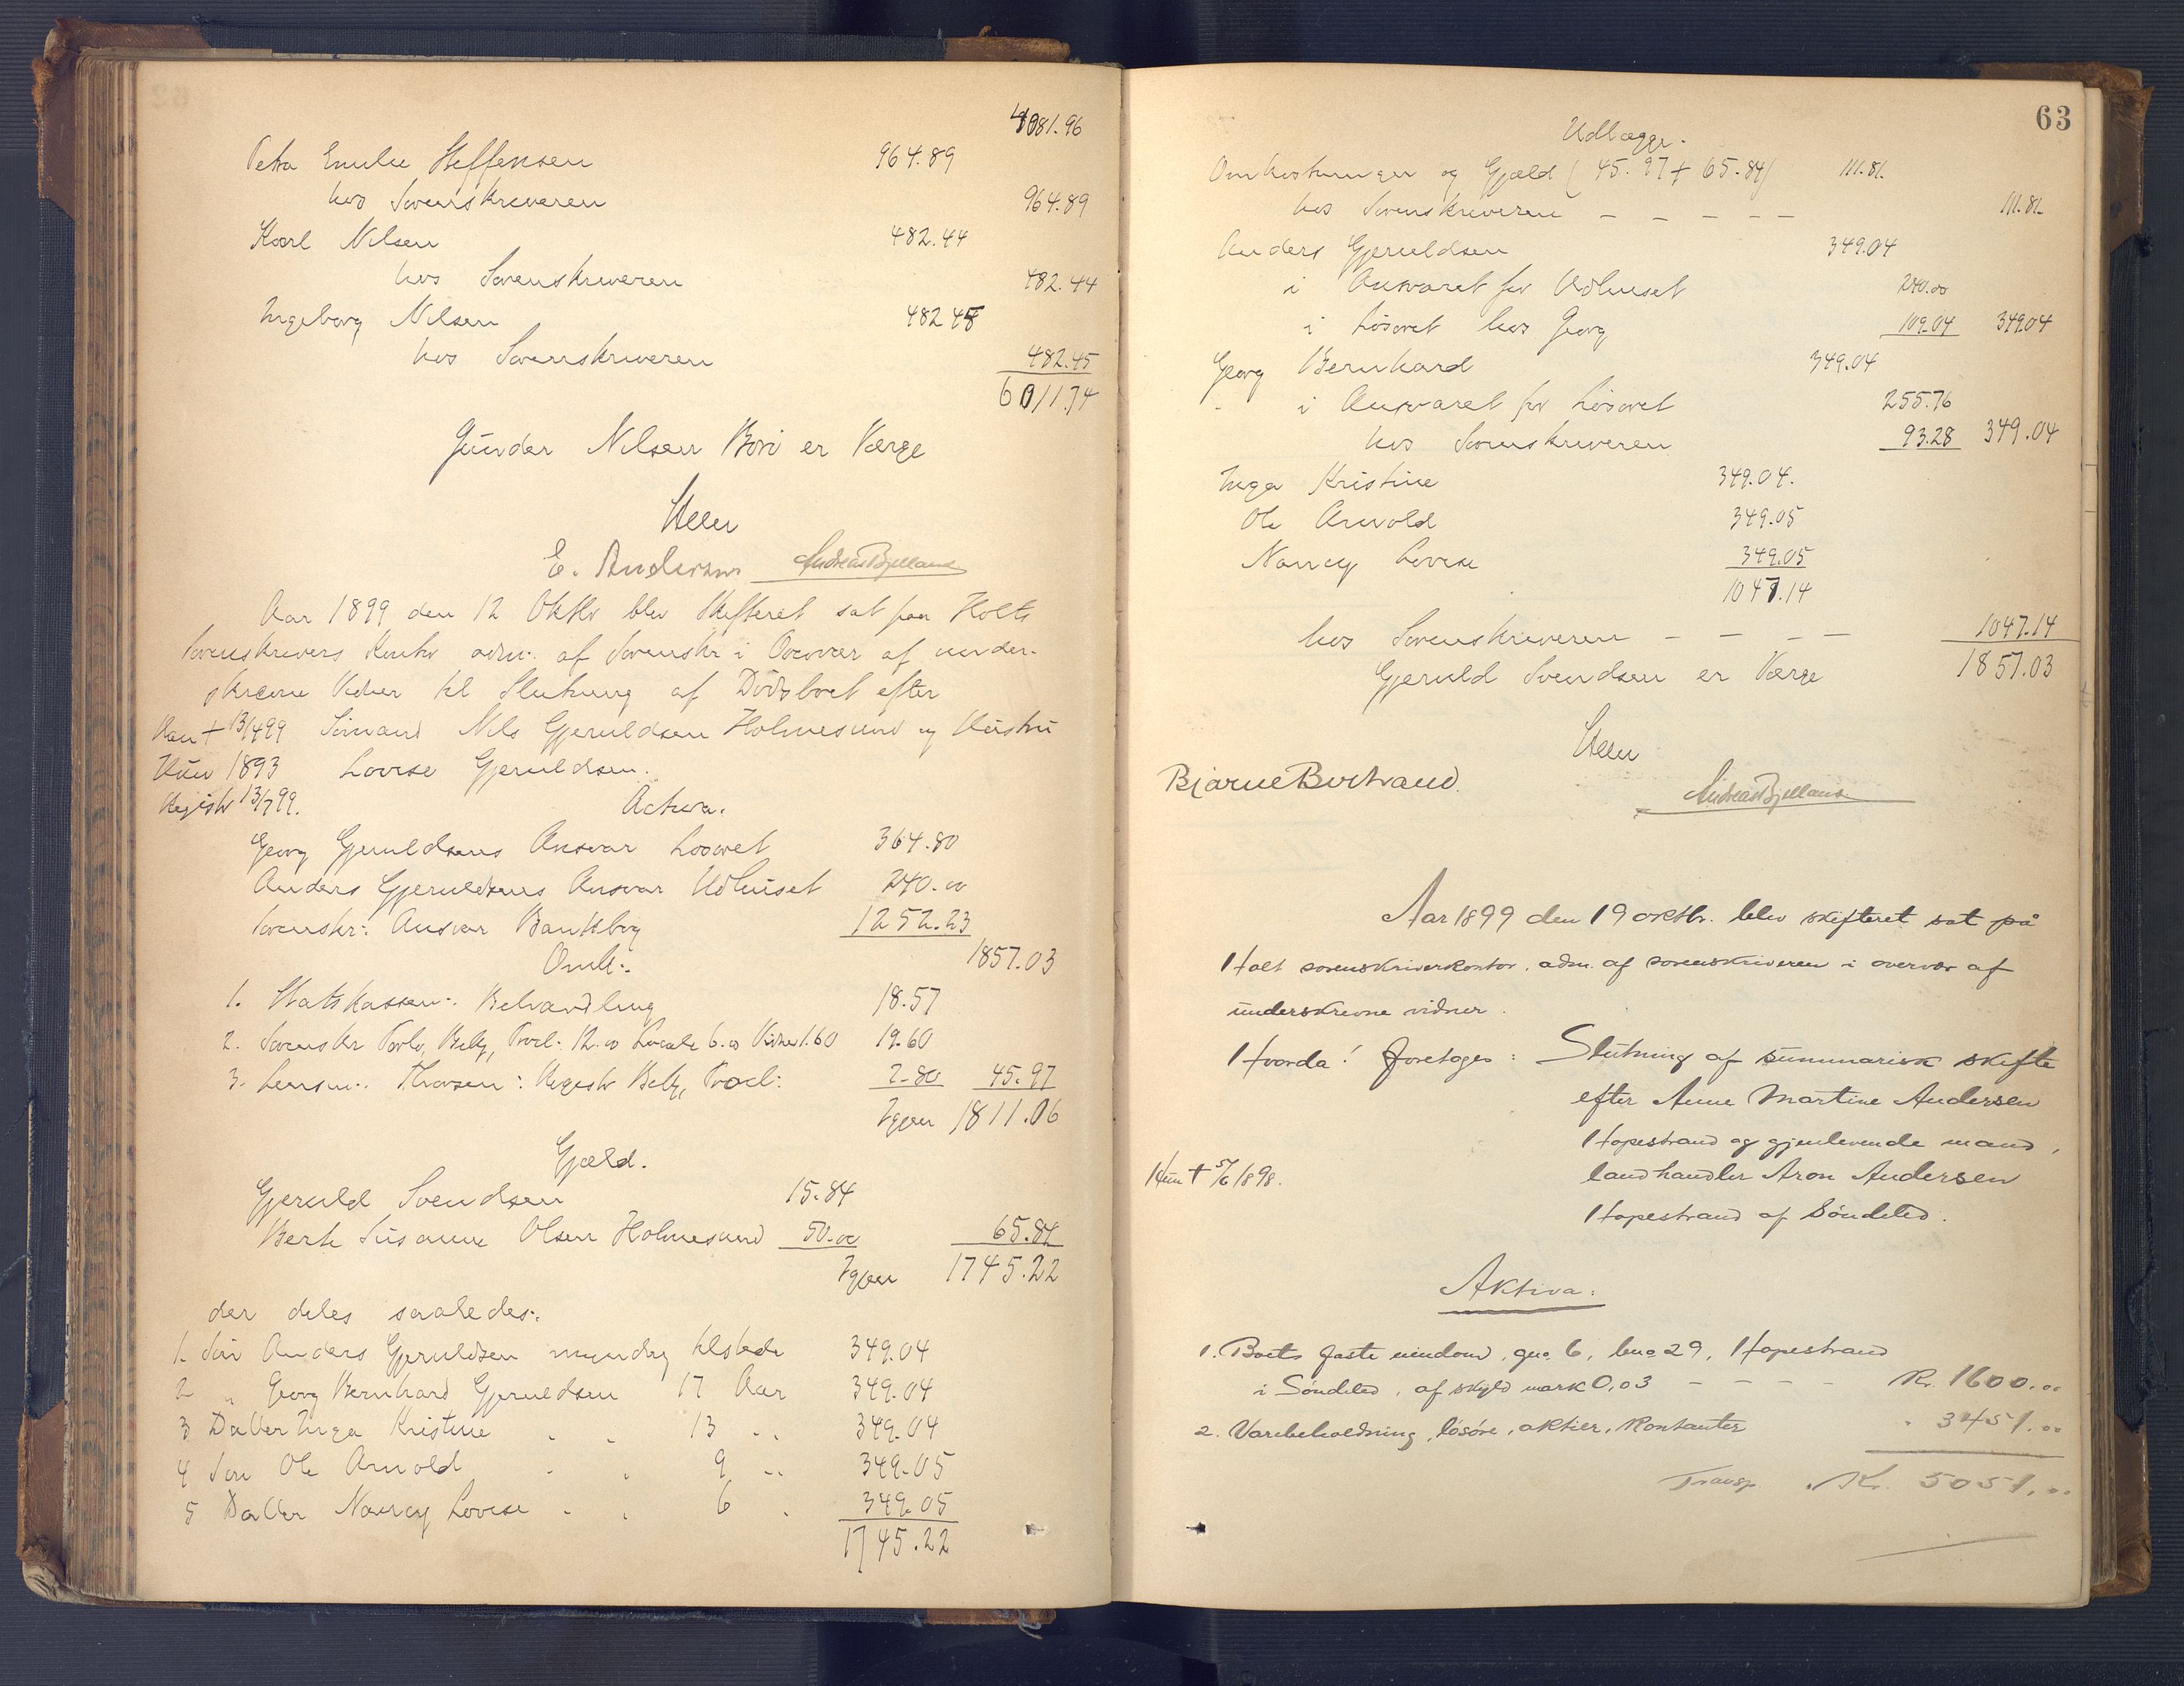 4081.96
Petra Emilie Steffensen 964.89
hos Sorenskriveren 964.89
Karl Nilsen 482.44
hos Sorenskriveren 482.44
Ingeborg Nilsen 482 45
hos Sorenskriveren 482.45
6011.74
Gunder Nilsen Boro er Værge
Steen
E. Andersen Andreas Bjelland
Aar 1899 den 12 Oktbr blev Skifteret sat paa Holts
Sorenskrivers Kontor adm. af Sorenskr i Overvær af under-
skrevne Vidner til Slutning af Dödsboet efter
Han + 13/4 99 Sömand Nils Gjeruldsen Holmesund og Hustru
Hun 1893 Lovise Gjeruldsen.
Registr 13/7 99.
Activa.
Georg Gjeruldsens Ansvar Lösöret 364.80
Anders Gjeruldsens Ansvar Udhuset 240.00
Sorenskr: Ansvar Bankbog 1252.23
1857.03
Omk:.
1. Statskassen:. Behandling 18.57
2. Sorenskr Forlv, Bekj, Procl. 12.00 Locale 6.00 Vidner 1.60 19.60
3. Lensm:. Thorsen: Registr Bekj, Procl: 2.80 45.97
Igjen 1811.06
Gjæld.
Gjeruld Svendsen 15.84
Berte Susanne Olsen Holmesund 50.00 65.84
Igjen 1745.22
der deles saaledes:.
1. Sön Anders Gjeruldsen myndig tilstede 349.04
2 " Georg Bernhard Gjeruldsen 17 Aar 349.04
3 Datter Inga Kristine 13 " 349.04
4 Sön Ole Arnold 9 " 349.05
5 Datter Nancy Lovise 6 " 349.05
1745.22
63
Udlægge.
Omkostninger og Gjæld (45.97 + 65.84) 111.81.
hos Sorenskriveren – – – – – 111.81.
Anders Gjeruldsen 349.04
i Ansvaret for Udhuset 240.00
i Lösöret hos Georg 109.04 349.04
Georg Bernhard 349.04
i Ansvaret for Lösöret 255.76
hos Sorenskriveren 93.28 349.04
Inga Kristine 349.04.
Ole Arnold 349.05
Nancy Lovise 349.05
1047.14
hos Sorenskriveren – – – – 1047.14
Gjeruld Svendsen er Værge 1857.03
Steen
Bjarne Bertrand. Andreas Bjelland
Aar 1899 den 19 oktbr. blev skifteret sat på
Holt sorenskriverkontor, adm. af sorenskriveren i overvær af
underskrevne vidner.
Hvorda! foretoges: Slutning af summarisk skifte
efter Anne Martine Andersen
Hopestrand og gjenlevende mand,
Hun † 5/6 1898. landhandler Aron Andersen
Hopestrand af Söndeled.
Aktiva:
1. Boets faste eiendom, gno. 6, bno 29, Hopestrand
i Söndeled, af skyld mark 0,03 – – – – Kr. 1600.00
2. Varebeholdning, lösöre, aktier, kontanter " 3451.00
Transp. Kr. 5051.00